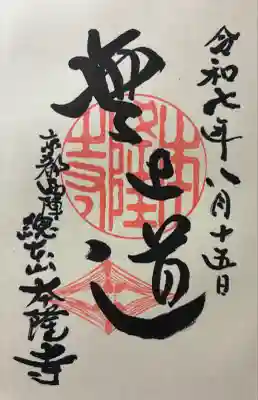 令和七年八月十五日
無上道
本隆寺
京都西陣 總本山 本隆寺